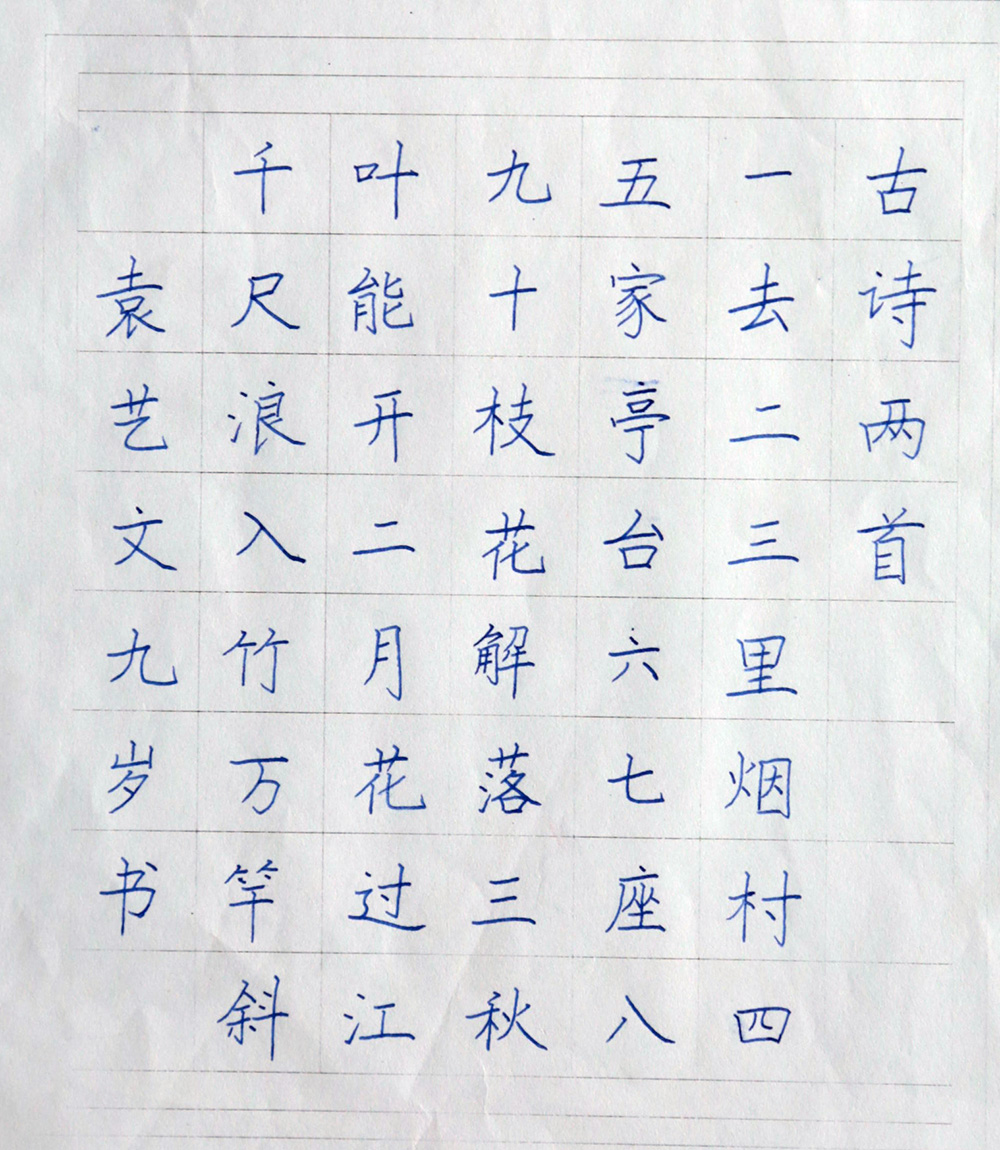 古诗两首
一去二三里烟村四
五家亭台六七座八
九十枝花解落三秋
叶能开二月花过江
千尺浪入竹万竿斜
袁艺文九岁书